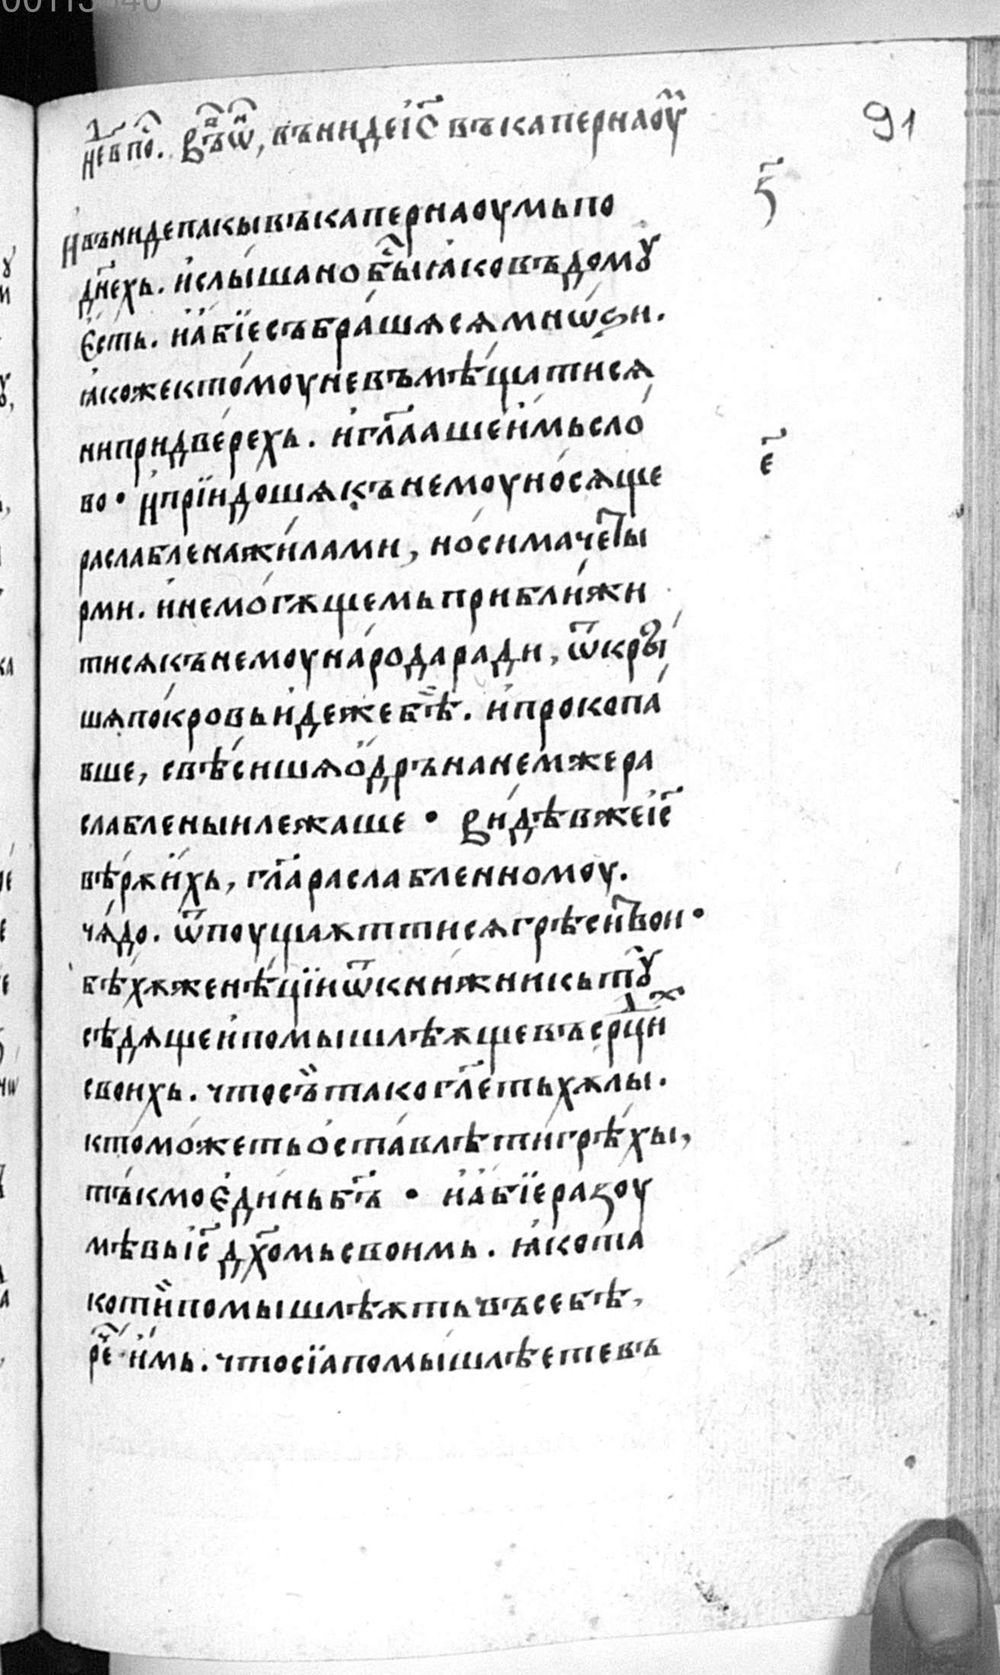 00113540
91
не҃в по҇. в̾ъ ѿ, вънидеі҃с въкапернаоу҃
ѕ҃
Ивънидепакывъкапернаоумьпо
дн҃ехь. и҆слы́шано бы҇ ꙗ҆ковъдомꙋ
є҆сть. на́бїесъбра́шѧсѧмнѡ́ѕи.
ꙗ҆кожектомоуневъмѣ́щатисѧ
нипридве́рехь. и҆гл҃аашеи҆́мьсло́
е҃
во • И҆прїидо́шѧкъ немоуно́сѧще
раславленажи́лами, но́симачеты
рми. и҆немо́гѫщемьприближи
тисѧкънемоунаро́дара́ди, ѿкры́
шѧпо́кровьидежебѣ҇. и҆прокопа́
вше, свѣ́сишѧо҆́дръна́не́мжера
слабленыилежаше • Ви́дѣвжеі҃с
вѣ́рѫи́хь, гл҃араслабленномоу.
чѧ́до. ѿпоущаѫттисѧгрѣситвои •
бѣ́хѫженѣ́цїиѿкни́жникьтꙋ
сѣдѧщеи҆помышлѣѫщевъсрдци́
своихь. чтосътакогл҃етьхꙋлы.
ктомо́жетьо҆ста́влѣтигрѣ́хы,
тъкмоє҆ди́ньбг҃ъ • на́бїеразоу
мѣвьі҃с дх҃омьсвоимь. ꙗ҆кота
котїипомышлѣѫтьвъсебѣ,
ре҇ и҆́мь. чтосїапомы́шлѣетевъ